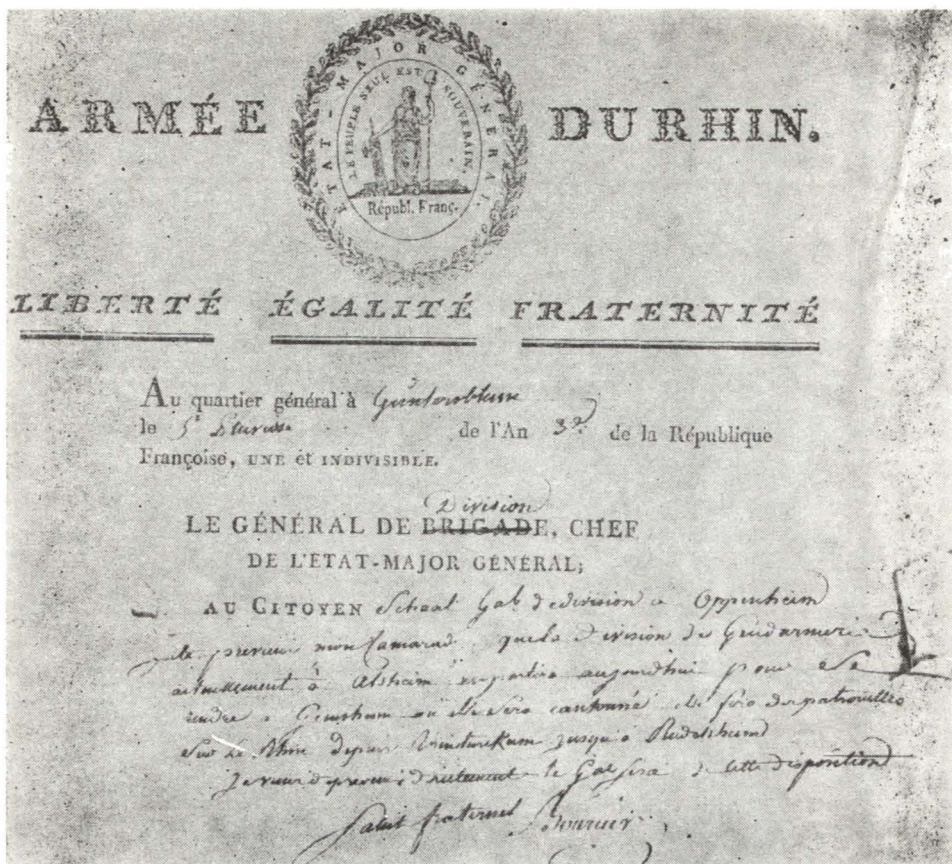 ARMÉE DU RHIN.
ÉTAT-MAJOR GÉNÉRAL.
LE PEUPLE SEUL EST SOUVERAIN.
Républ. Franç.
LIBERTÉ ÉGALITÉ FRATERNITÉ
Au quartier général à
le 5e de l'An 3e. de la République
Françoise, UNE et INDIVISIBLE.
Division
LE GÉNÉRAL DE BRIGADE, CHEF
DE L'ÉTAT-MAJOR GÉNÉRAL;
AU CITOYEN Schaal Gal de division à Oppenheim
te previens mon Camarade que la division de Gendarmerie
actuellement à Alsheim en partira aujourdhui pour se
rendre à ou Elle sera cantonné elle fera des patrouilles
sur le Rhin depuis jusqu'à
Je viens de prevenir directement le Gal de cette disposition
Salut fraternel